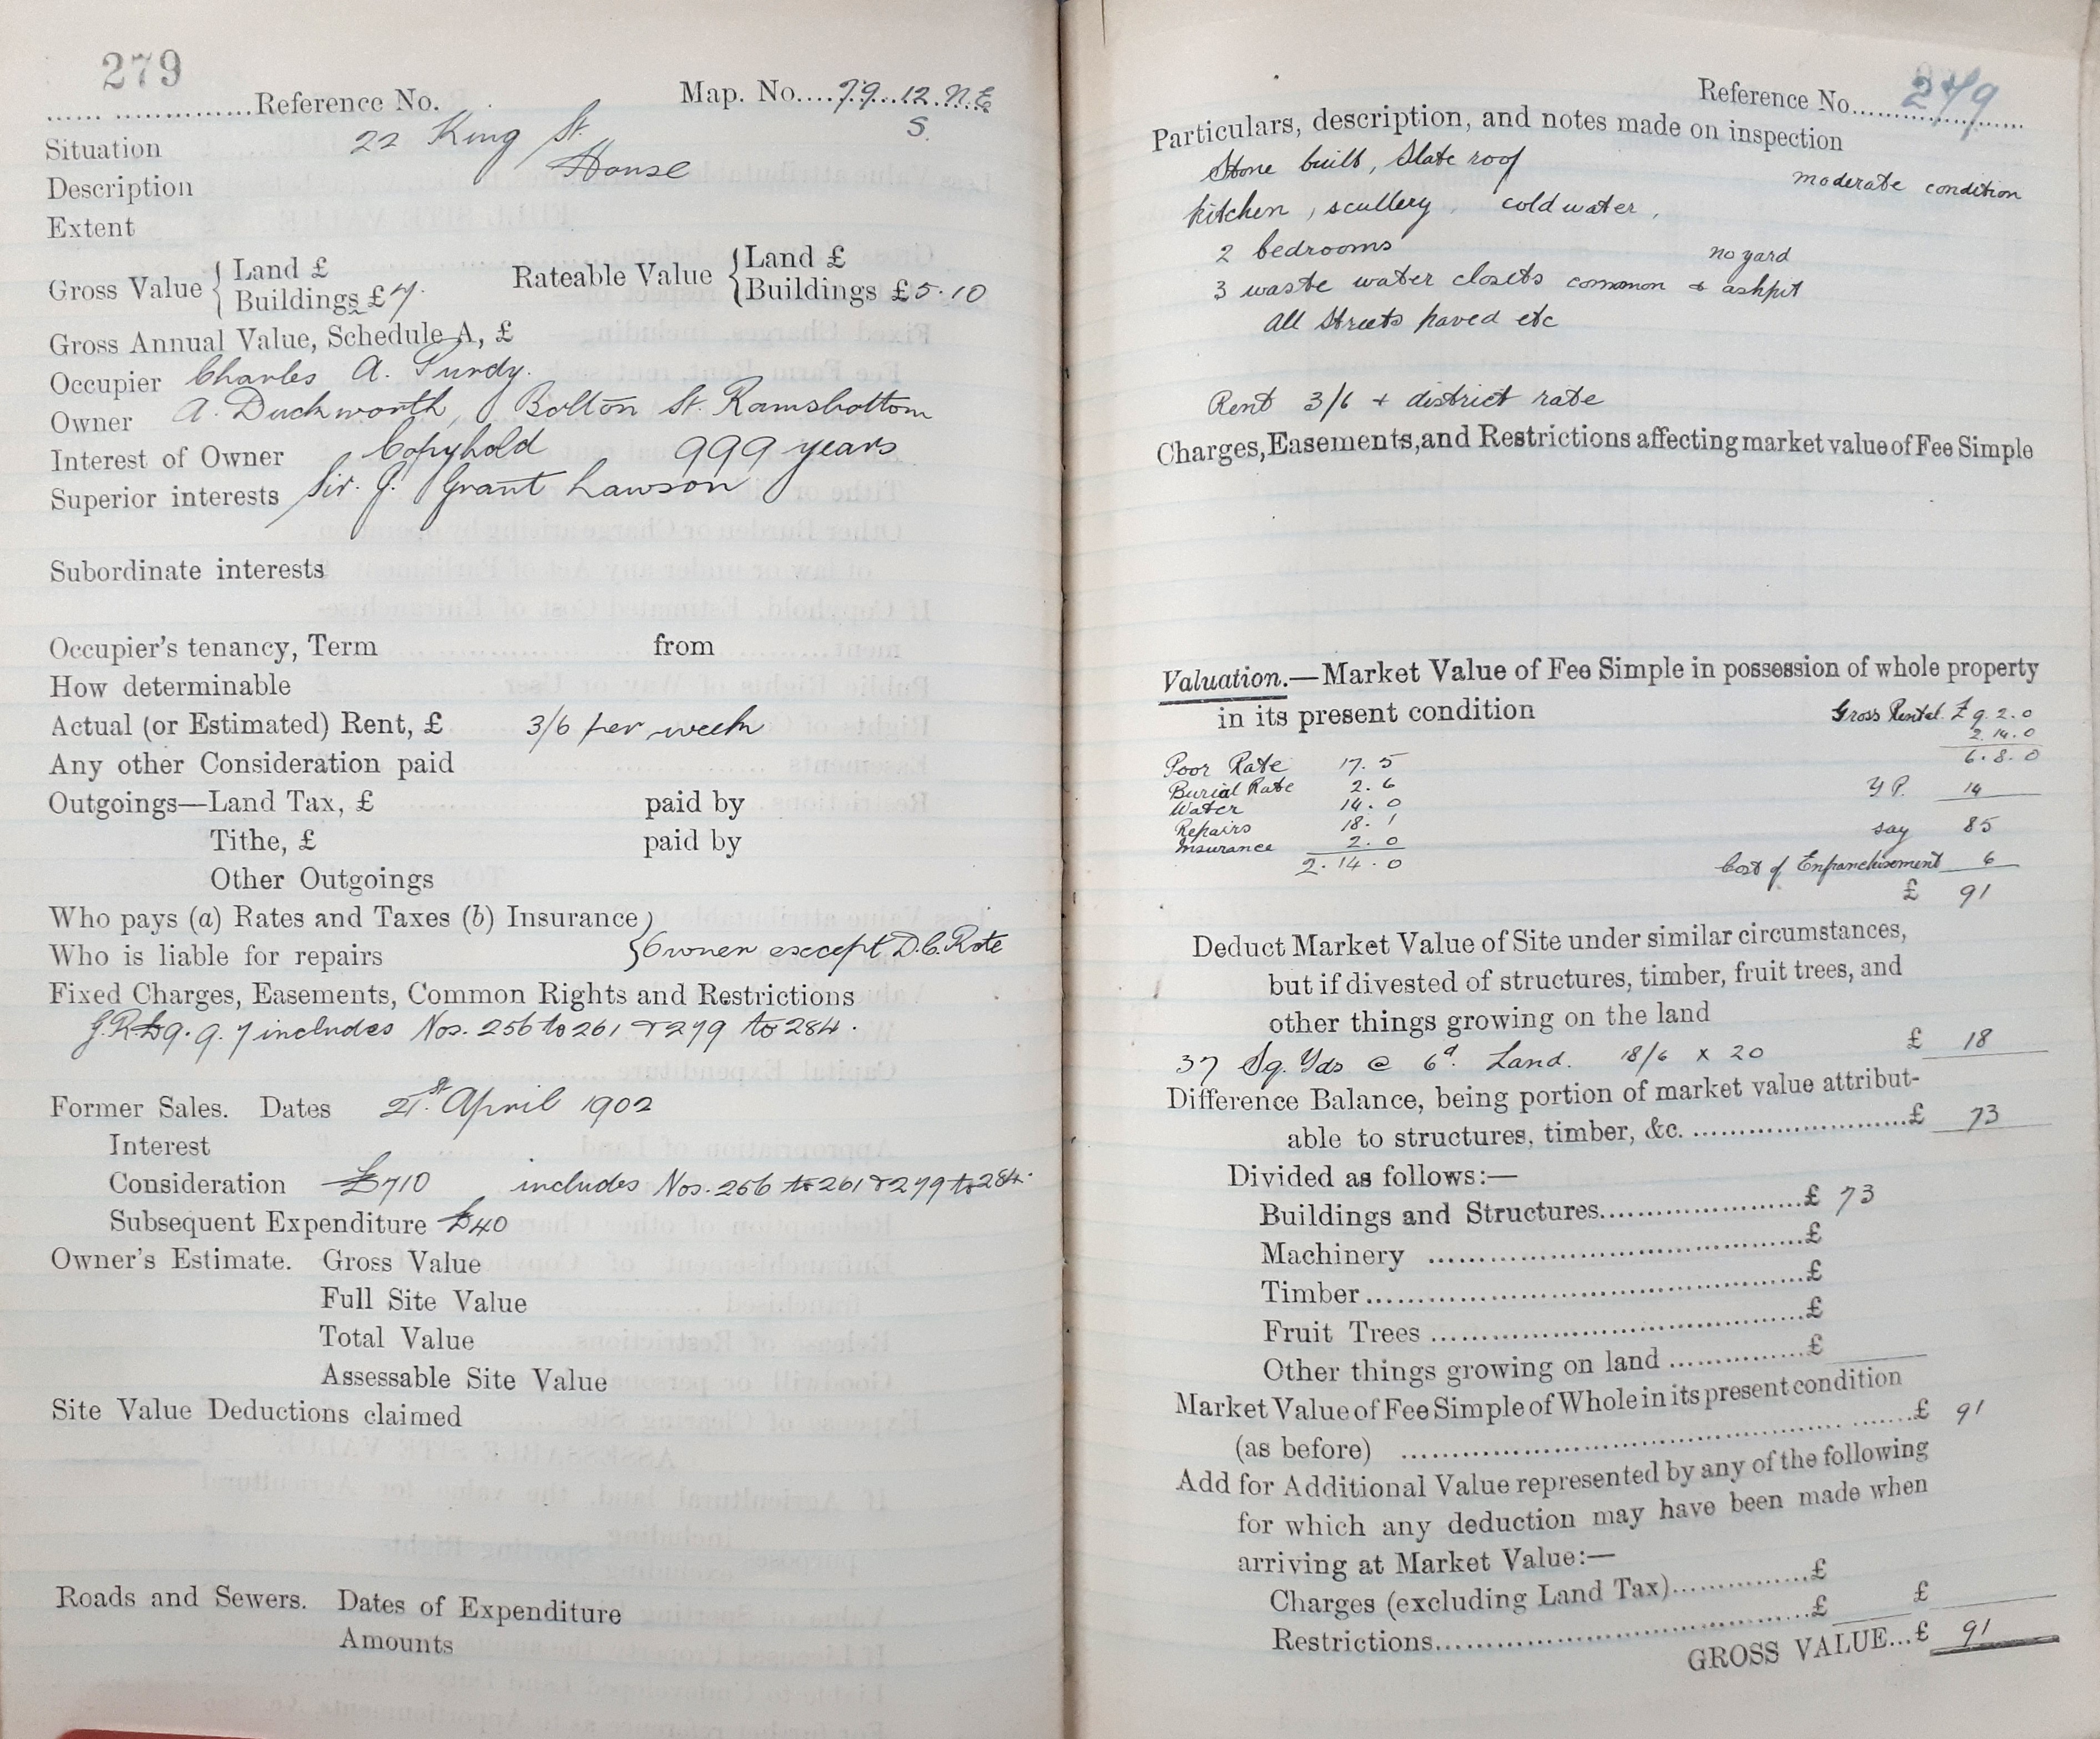 279
...... ..............Reference No. Map. No....79..12.N.E
S.
Situation 22 King St.
Description House
Extent
Gross Value { Land £ Rateable Value { Land £
Buildings £7. Buildings £5.10
Gross Annual Value, Schedule A, £
Occupier Charles A. Purdy.
Owner A. Duckworth, Bolton St. Ramsbottom
Interest of Owner Copyhold 999 years
Superior interests Sir. J. Grant Lawson
Subordinate interests
Occupier's tenancy, Term from
How determinable
Actual (or Estimated) Rent, £ 3/6 per week
Any other Consideration paid
Outgoings—Land Tax, £ paid by
Tithe, £ paid by
Other Outgoings
Who pays (a) Rates and Taxes (b) Insurance }
Who is liable for repairs } Owner except D.C. Rate
Fixed Charges, Easements, Common Rights and Restrictions
G.R. £9.9.7 includes Nos. 256 to 261 & 279 to 284.
Former Sales. Dates 21st. April 1902
Interest
Consideration £710 includes Nos. 256 to 261 & 279 to 284.
Subsequent Expenditure £40
Owner's Estimate. Gross Value
Full Site Value
Total Value
Assessable Site Value
Site Value Deductions claimed
Roads and Sewers. Dates of Expenditure
Amounts
Reference No....279
Particulars, description, and notes made on inspection
Stone built, Slate roof moderate condition
kitchen, scullery, cold water,
2 bedrooms no yard
3 waste water closets common & ashpit
All Streets paved etc
Rent 3/6 + district rate
Charges, Easements, and Restrictions affecting market value of Fee Simple
Valuation.—Market Value of Fee Simple in possession of whole property
in its present condition Gross Rental £9.2.0
2.14.0
Poor Rate 17.5 6.8.0
Burial Rate 2.6 Y P. 14
Water 14.0
Repairs 18.1 say 85
Insurance 2.0
2.14.0 Cost of Enfranchisement 6
£ 91
Deduct Market Value of Site under similar circumstances,
but if divested of structures, timber, fruit trees, and
other things growing on the land
37 Sq. Yds @ 6d. Land. 18/6 x 20 £ 18
Difference Balance, being portion of market value attribut-
able to structures, timber, &c. ........................£ 73
Divided as follows:—
Buildings and Structures.......................£ 73
Machinery ...........................................£
Timber..................................................£
Fruit Trees ..........................................£
Other things growing on land ...............£
Market Value of Fee Simple of Whole in its present condition
(as before) ......................................................£ 91
Add for Additional Value represented by any of the following
for which any deduction may have been made when
arriving at Market Value:—
Charges (excluding Land Tax)...............£
Restrictions..........................................£ £
GROSS VALUE...£ 91